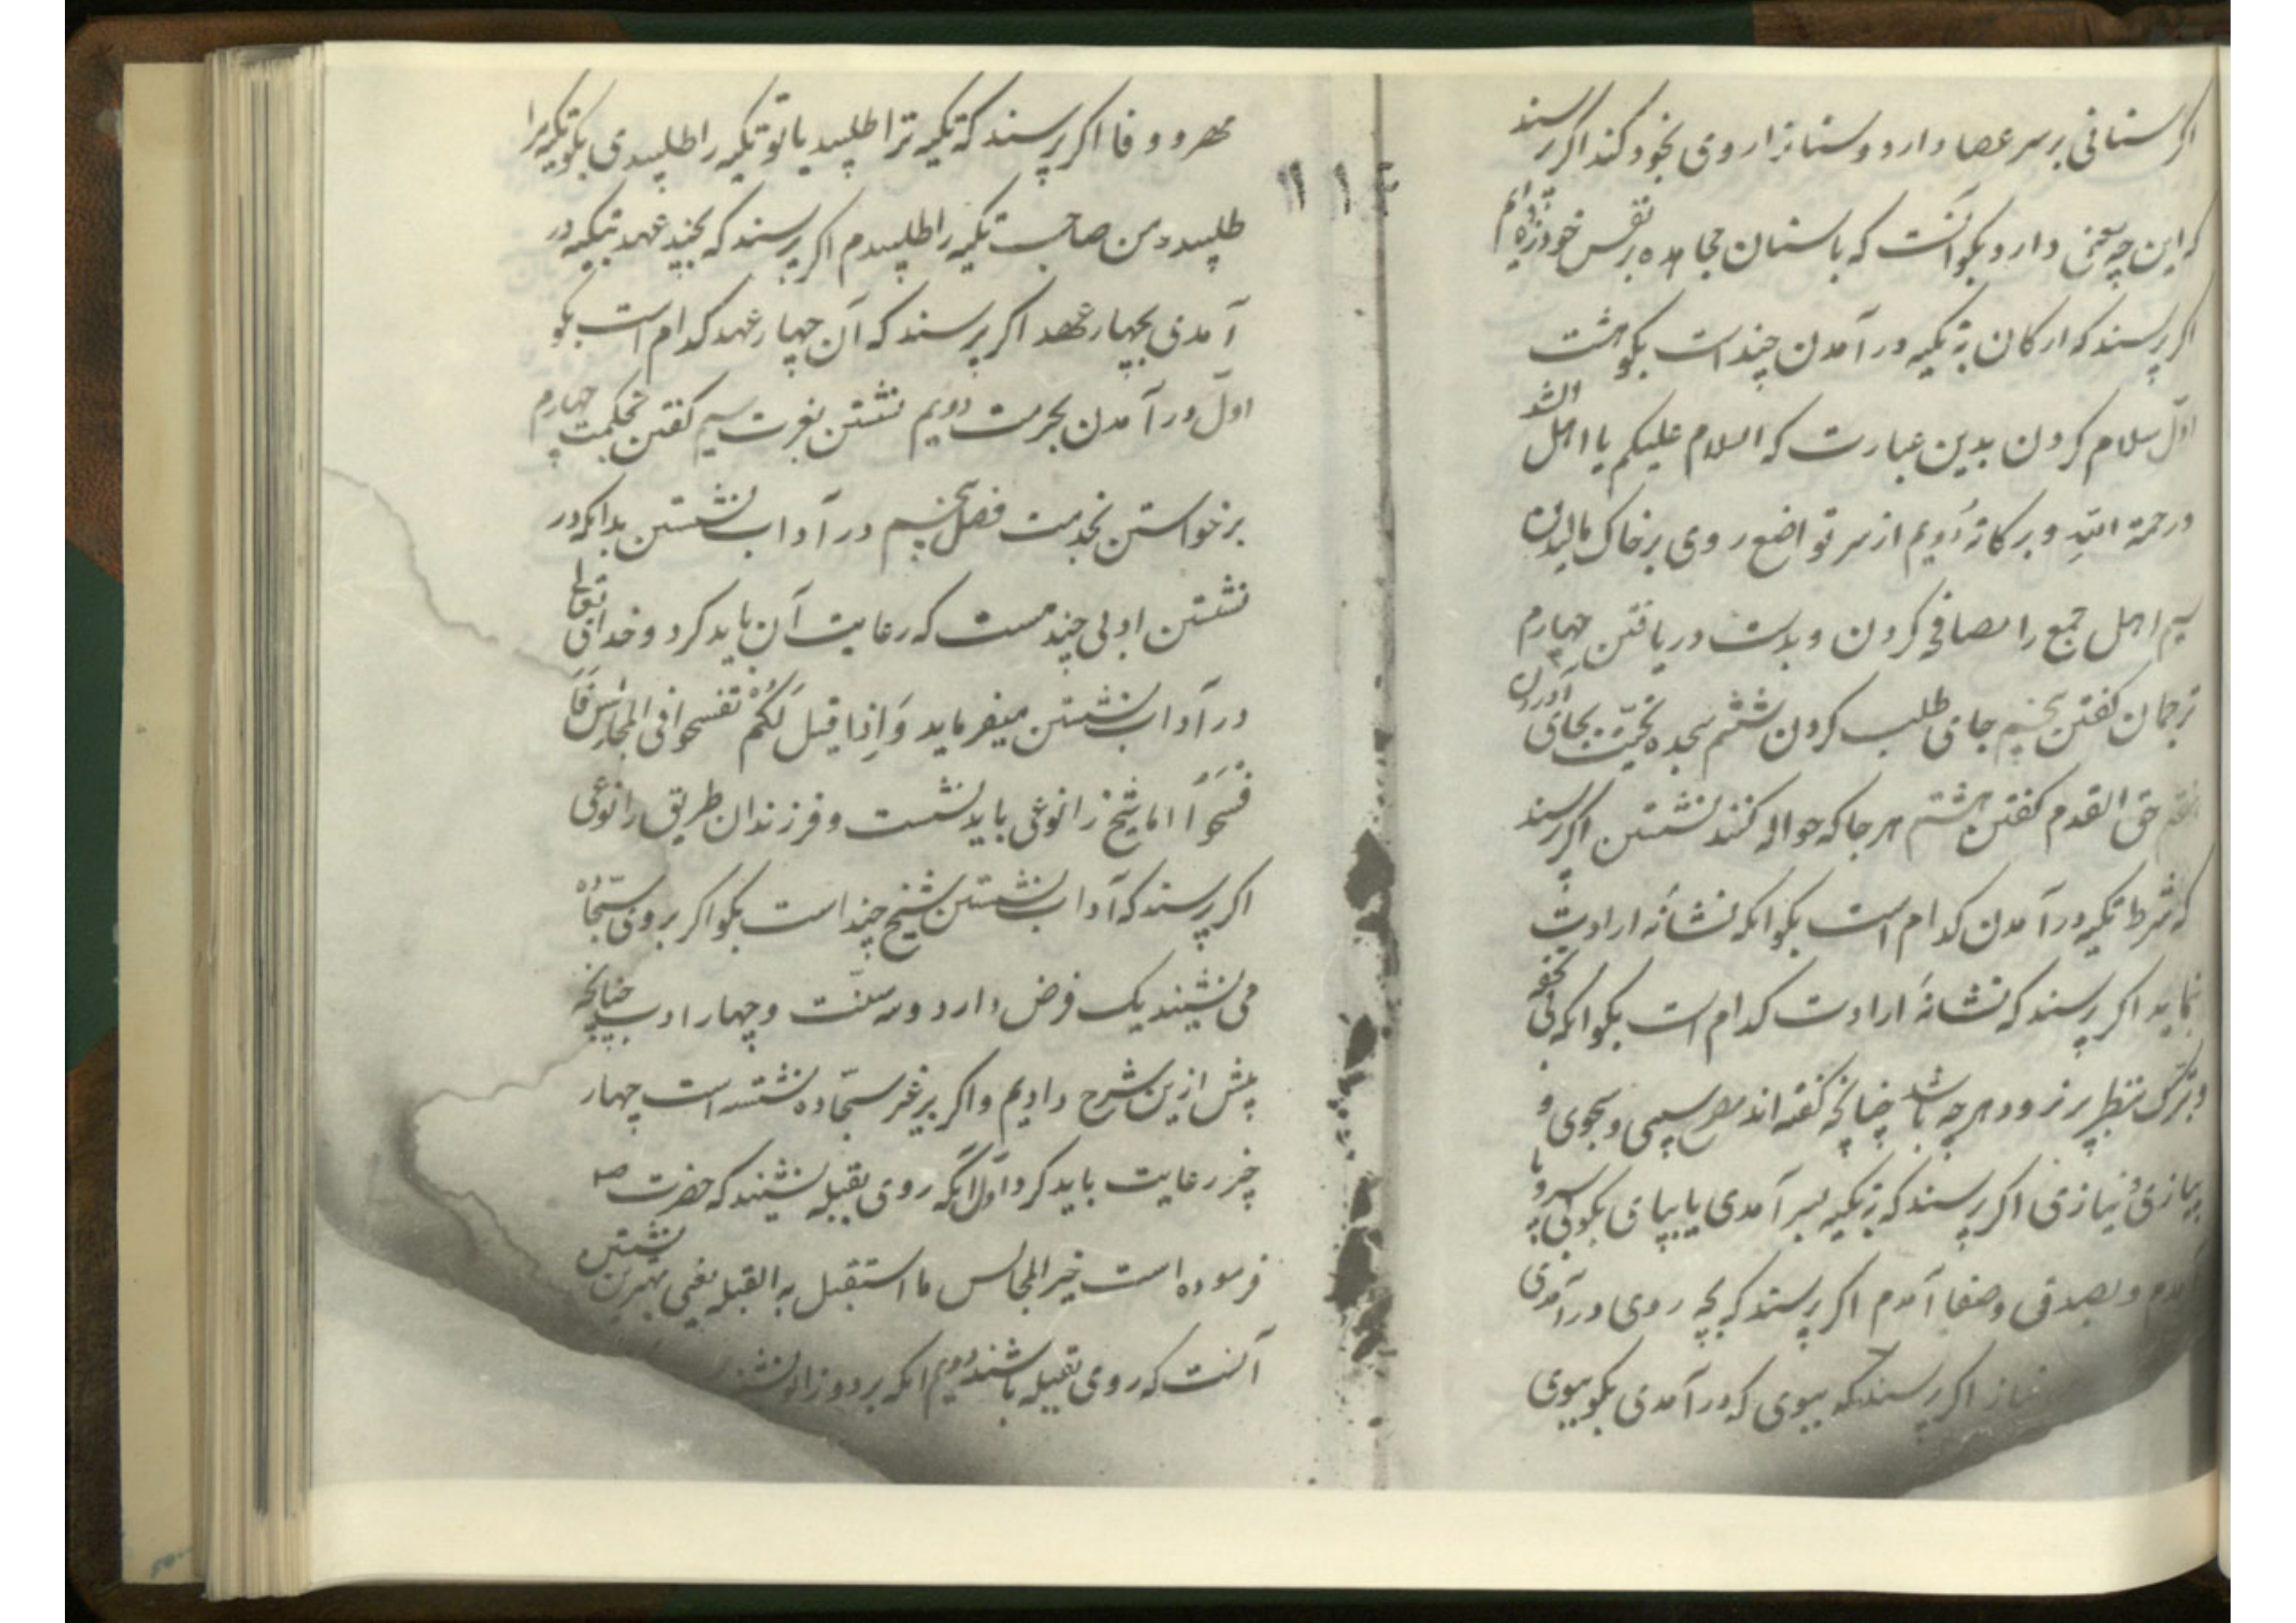 اکر سنانی بر سر عصا دارد و سنانرا روی بخود کند اکر پرسند
که این چه معنی دارد بکو آنست که باسنان مجاهده بر نفس خود زده ایم
اکر پرسند که ارکان بتکیه در آمدن چند است بکو هشت
اول سلام کردن بدین عبارت که السلام علیکم یا اهل الشد
ورحمة الله وبرکاته دویم از سر تواضع روی بر خاک مالیدن
سیم اهل جمع را مصافحه کردن و بدست دریافتن چهارم
ترجمان کفتن پنجم جای طلب کردن ششم سجده تحیّت بجای آوردن
هفتم حق القدم کفتن هشتم هر جا که حواله کنند نشستن اکر پرسند
که شرط تکیه در آمدن کدام است بکو انکه نشانهٔ ارادت
نماید اکر پرسند که نشانهٔ ارادت کدام است بکو انکه بی تحفه
و بترک بنظر پیر نرود هر چه باشد چنانچه کفته اند مصرع سیبی و بجوی و
پیازی و نیازی اکر پرسند که بتکیه بسر آمدی یا بپای بکو بی سر و پا
آمدم و بصدق و صفا آمدم اکر پرسند که بچه روی در آمدی
نیاز اکر پرسند که ببوی که در آمدی بکو ببوی
مهر و وفا اکر پرسند که تکیه ترا طلبید یا تو تکیه را طلبیدی بکو تکیه مرا
طلبید و من صاحب تکیه را طلبیدم اکر پرسند که بچند عهد بتکیه در
آمدی بچهار عهد اکر پرسند که آن چهار عهد کدام است بکو
اول در آمدن بحرمت دویم نشستن بعزت سیم کفتن بحکمت چهارم
برخواستن بخدمت فصل پنجم در آداب نشستن بدانکه در
نشستن ادبی چند هست که رعایت آن باید کرد و خدای تعالی
در آداب نشستن میفرماید وَاِذا قیلَ لَکُمْ تفسحوا فی المجالس فَا
فْسَحُوا اما شیخ را نوعی باید نشست و فرزندان طریق را نوعی
اکر پرسند که آداب نشستن شیخ چند است بکو اکر بر روی سجّاده
می نشیند یک فرض دارد و سه سنّت و چهار ادب چنانچه
پیش ازین شرح دادیم و اکر بر غیر سجّاده نشسته است چهار
چیز رعایت باید کرد اول آنکه روی بقبله نشیند که حضرت ص
فرموده است خیر المجالس ما استقبل به القبله یعنی بهترین نشستن
آنست که روی بقبله باشند دویم انکه بر دو زانو نشیند